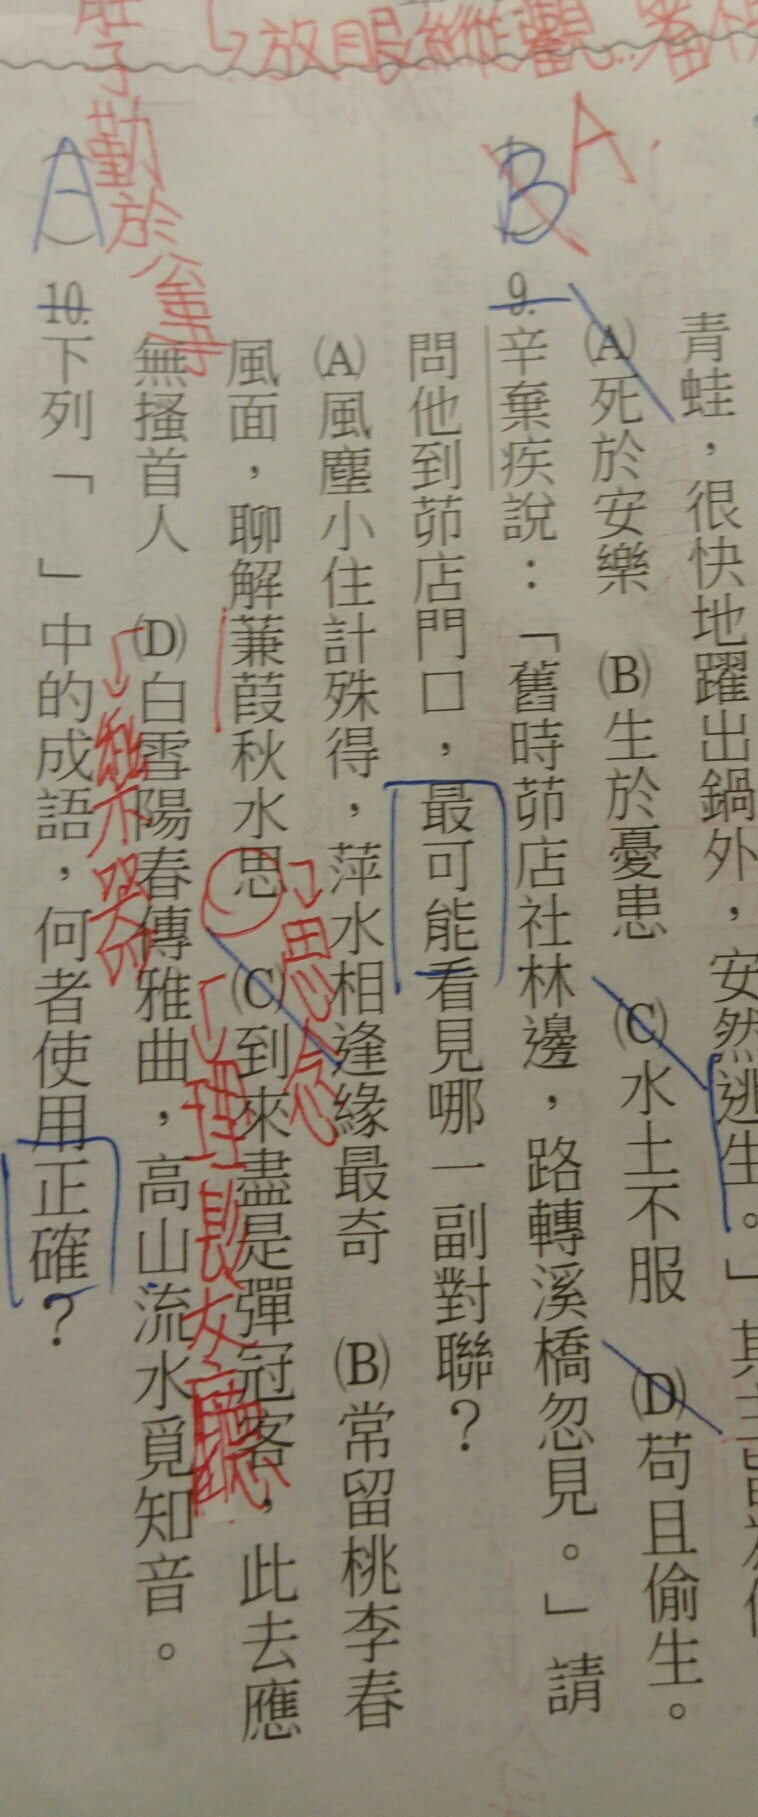 放眼縱觀
青蛙，很快地躍出鍋外，安然逃生。」其
(A)死於安樂 (B)生於憂患 (C)水土不服 (D)苟且偷生。
A
B
9.辛棄疾說：「舊時茆店社林邊，路轉溪橋忽見。」請
問他到茆店門口，最可能看見哪一副對聯？
(A)風塵小住計殊得，萍水相逢緣最奇 (B)常留桃李春
思念
風面，聊解蒹葭秋水思 (C)到來盡是彈冠客，此去應
理髮
無搔首人 (D)白雪陽春傳雅曲，高山流水覓知音。
樂器
勤於公事
A
10.下列「 」中的成語，何者使用正確？